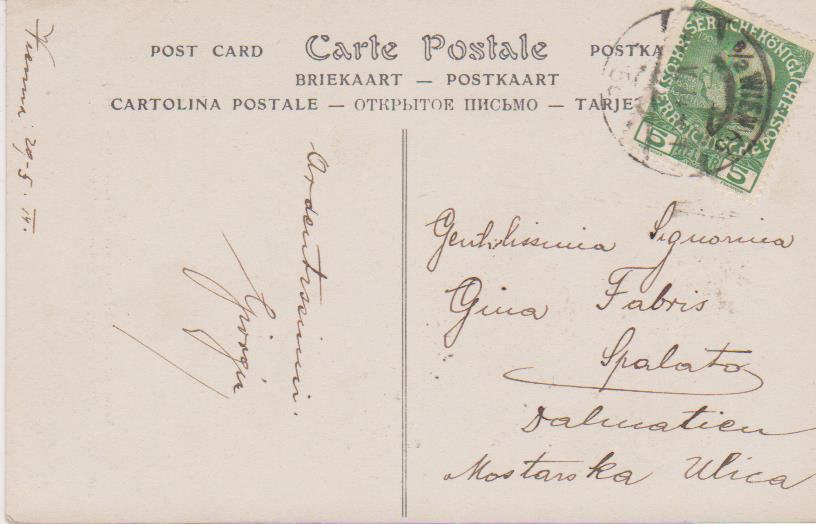 POST CARD Carte Postale POSTKA
BRIEKAART — POSTKAART
CARTOLINA POSTALE — ОТКРЫТОЕ ПИСЬМО — TARJE
Vienna 29-5. 14.
Ardentissimi.
Giorgio
Gentilissima Signorina
Gina Fabris
Spalato
Dalmatien
Mostarska Ulica
WIEN
5 5